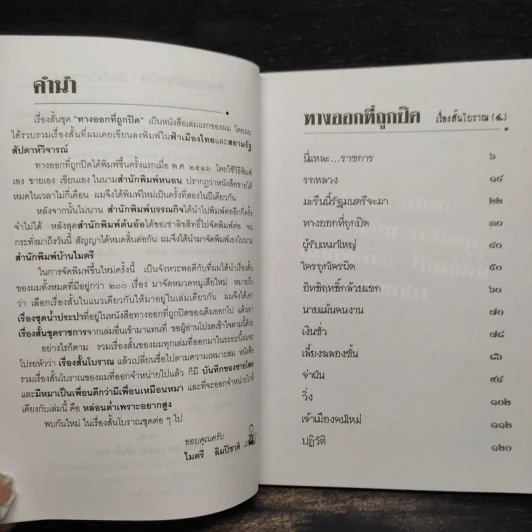 คำนำ
เรื่องสั้นชุด "ทางออกที่ถูกปิด" เป็นหนังสือเล่มแรกของผม โดยผม
ได้รวบรวมเรื่องสั้นที่ผมเคยเขียนลงพิมพ์ในฟ้าเมืองไทยและสยามรัฐ
สัปดาห์วิจารณ์
ทางออกที่ถูกปิดได้พิมพ์ขึ้นครั้งแรกเมื่อ พ.ศ. ๒๕๑๖ โดยใช้วิธีพิมพ์
เอง ขายเอง เขียนเอง ในนามสำนักพิมพ์หนอน ปรากฏว่าหนังสือขายได้
หมดในเวลาไม่กี่เดือน ผมจึงได้พิมพ์ใหม่เป็นครั้งที่สองในปีเดียวกัน
หลังจากนั้นไม่นาน สำนักพิมพ์บรรณกิจได้นำไปพิมพ์ต่ออีกกี่ครั้ง
จำไม่ได้ หลังสุดสำนักพิมพ์ต้นอ้อได้ขอเช่าลิขสิทธิ์ไปจัดพิมพ์ต่อ จน
กระทั่งมาถึงวันนี้ สัญญาได้หมดสิ้นต่อกัน ผมจึงได้นำมาจัดพิมพ์เองในนาม
สำนักพิมพ์บ้านไมตรี
ในการจัดพิมพ์ขึ้นใหม่ครั้งนี้ เป็นจังหวะพอดีกับที่ผมได้นำเรื่องสั้น
ของผมทั้งหมดที่มีอยู่กว่า ๒๐๐ เรื่อง มาจัดหมวดหมู่เสียใหม่ หมายถึง
ว่า เลือกเรื่องสั้นในแนวเดียวกันให้มาอยู่ในเล่มเดียวกัน ผมจึงได้
เรื่องชุดน้ำประปาที่อยู่ในหนังสือทางออกที่ถูกปิดของเดิมออกไป แล้วเอา
เรื่องสั้นชุดราชการจากเล่มอื่นเข้ามาแทนที่ ขอผู้อ่านโปรดเข้าใจตามนี้ด้วย
อย่างไรก็ตาม รวมเรื่องสั้นของผมทุกเล่มที่ออกมาในระยะนี้ผมจะ
โปรยหัวว่า เรื่องสั้นโบราณ แล้วเปลี่ยนชื่อไปตามความเหมาะสม หนังสือ
รวมเรื่องสั้นโบราณของผมที่ออกจำหน่ายไปแล้ว ก็มี บันทึกของชายโสด
และมีหมาเป็นเพื่อนดีกว่ามีเพื่อนเหมือนหมา และที่จะออกจำหน่ายใกล้
เคียงกับเล่มนี้ คือ หล่อนต่ำเพราะอยากสูง
พบกันใหม่ ในเรื่องสั้นโบราณชุดต่อ ๆ ไป
ขอบคุณครับ
ไมตรี ลิมปิชาติ
ทางออกที่ถูกปิด เรื่องสั้นโบราณ (๔)
นี่แหละ...ราชการ ๖
รถหลวง ๑๔
มะรืนนี้รัฐมนตรีจะมา ๒๒
ทางออกที่ถูกปิด ๓๐
ผู้รับเหมาใหญ่ ๔๐
ใครถูกใครผิด ๕๐
อิทธิฤทธิ์กล้วยแขก ๖๐
นายแม้นคนงาน ๗๐
เงินชั่ว ๗๘
เลี้ยงฉลองขั้น ๘๖
จ่าผัน ๙๔
วิ่ง ๑๐๒
เจ้าเมืองคนใหม่ ๑๑๒
ปฏิวัติ ๑๒๐